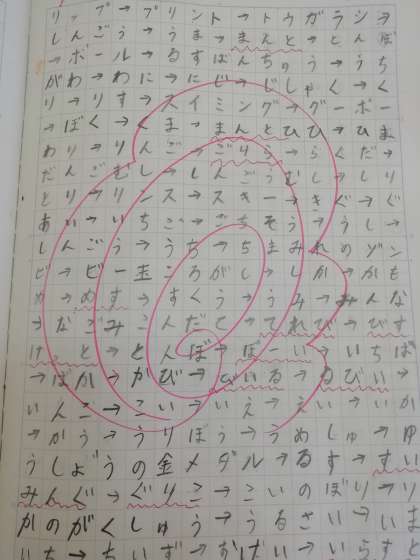 リップ→プリント→トウガラシ→
しんごう→うま→まえと→とんぼ
→ボール→るすばんちゅう→うち
がわ→わに→にじ→じしゃく→く
り→りす→スイミング→グーボー
→ぼく→くま→まんとひひ→ひま
わり→りんご→ごりう→らくだ→
だんごむし→しんごうむし→しり
とり→リンス→スキー→きぐ→ぐ
あい→いちご→ごちそう→うし→
しんごう→うち→ちまみれのゾン
ビ→ビー玉ころがし→しか→かも
め→めす→すくう→うみ→みんな
→なごみこんだて→てれび→びす
けっと→とんぼ→ぼーい→いちば
→ばか→かび→びいる→るびい→
いんこ→こい→いえ→えい→いか
→かう→うりぼう→うめしゅ→ゆ
うしょうの金メダル→るす→すい
みんぐ→ぐりこ→こいのぼり→り
かのがくしゅう→うるさい→いま
いち→ちいず→おけい→いらす